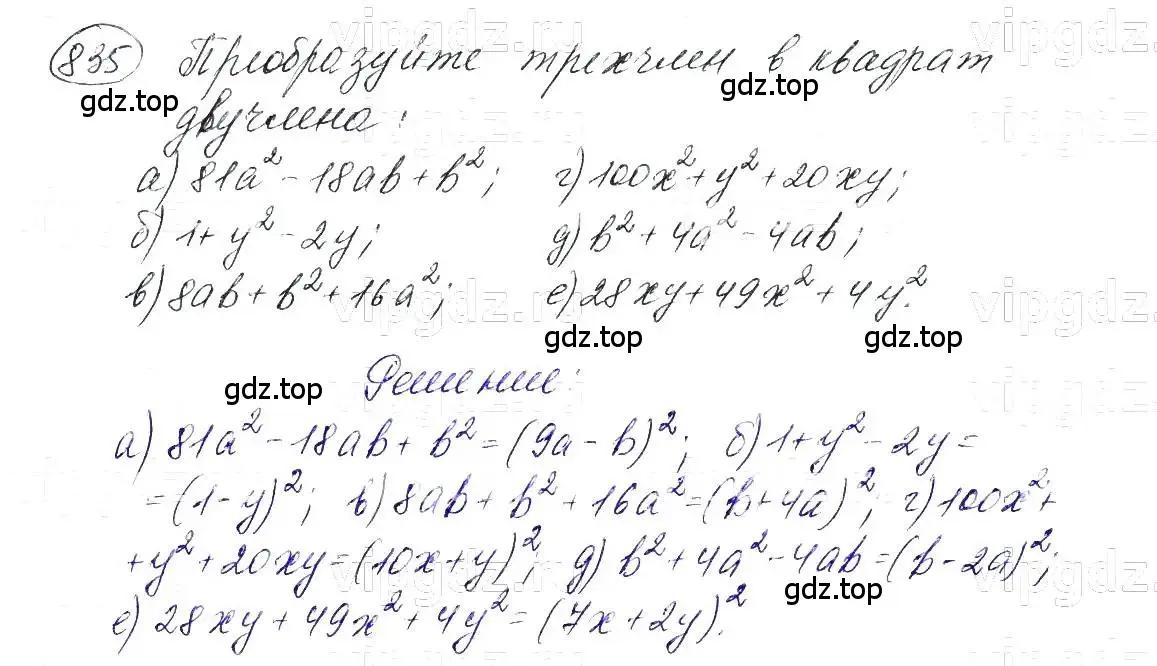 835 Преобразуйте трехчлен в квадрат
gdz.top gdz.top
двучлена:
а) 81a² - 18ab + b²; г) 100x² + y² + 20xy;
б) 1 + y² - 2y; д) b² + 4a² - 4ab;
в) 8ab + b² + 16a²; е) 28xy + 49x² + 4y².
vipgdz.ru
gdz.top gdz.top
Решение:
gdz.top
а) 81a² - 18ab + b² = (9a - b)²; б) 1 + y² - 2y =
= (1 - y)²; в) 8ab + b² + 16a² = (b + 4a)²; г) 100x² +
+ y² + 20xy = (10x + y)²; д) b² + 4a² - 4ab = (b - 2a)²;
gdz.top
е) 28xy + 49x² + 4y² = (7x + 2y)².